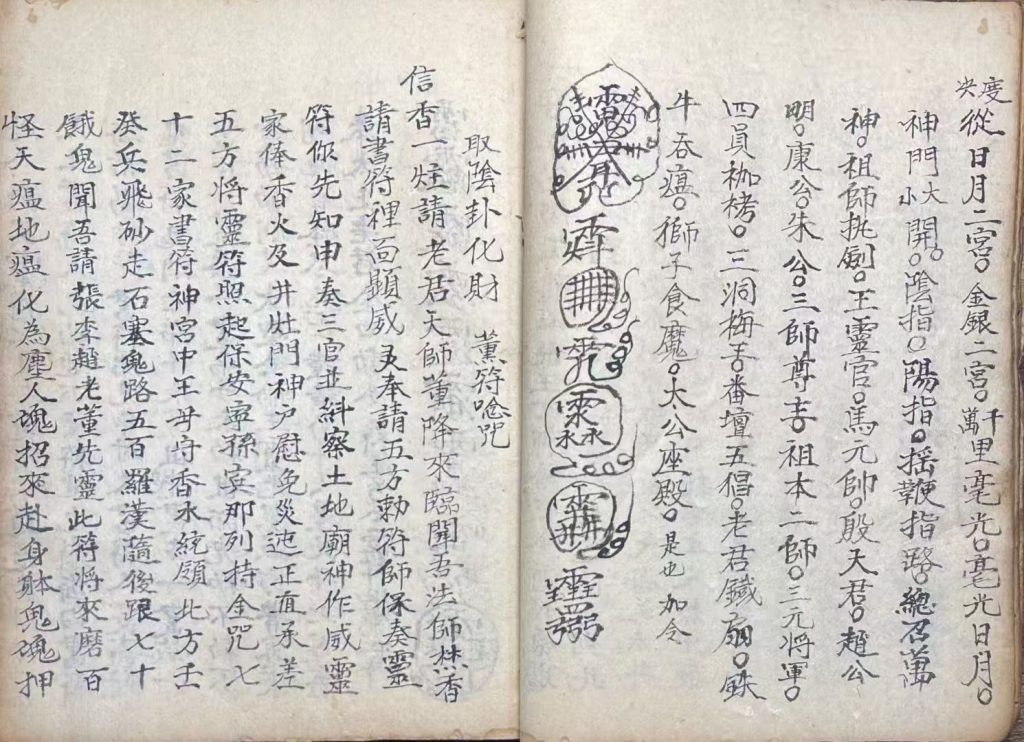 央度從日月二宮。金銀二宮。千萬里毫光。毫光日月。
神門大小開。陰指。陽指。搖鞭指路。總召萬
神。祖師执劍。王靈官。馬元帥。殷天君。趙公
明。康公。朱公。三師尊者。祖本二師。三元將軍。
四員枷栲。三洞梅子。番壇五倡。老君鐵扇。鉄
牛吞瘟。獅子食魔。大公座殿。是也加令
取陰卦化財 薰符唸咒
信香一炷請老君天師董降來臨聞吾法師焚香
請書符裡面顯威又奉請五方勅符師保奏靈
符你先知申奏三官並斜察土地廟神作威靈
家俸香火及井灶門神户慰免災迍正直承差
五方将靈符照起保安寧孫宾那列持金咒七
十二家書符神宮中王母守香水統領北方壬
癸兵飛砂走石塞鬼路五百羅漢隨後跟七十
餓鬼聞吾請張李趙老董先靈此符将來磨百
怪天瘟地瘟化為塵人魂招來赴身躰鬼魂押